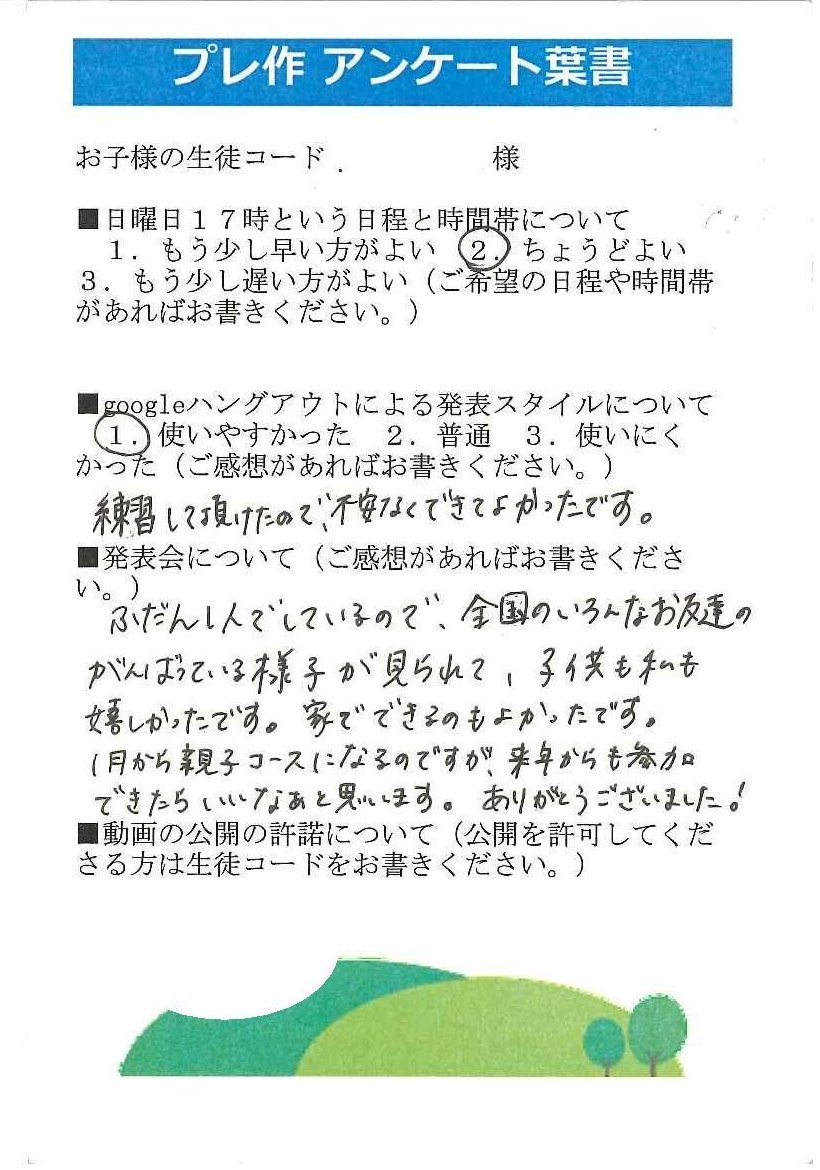 プレ作 アンケート葉書
お子様の生徒コード . 様
■日曜日１７時という日程と時間帯について
１．もう少し早い方がよい ２．ちょうどよい
３．もう少し遅い方がよい（ご希望の日程や時間帯
があればお書きください。）
■googleハングアウトによる発表スタイルについて
１．使いやすかった ２．普通 ３．使いにく
かった（ご感想があればお書きください。）
練習して頂けたので、不安なくできてよかったです。
■発表会について（ご感想があればお書きくださ
い。）
ふだん１人でしているので、全国のいろんなお友達の
がんばっている様子が見られて、子供も私も
嬉しかったです。家でできるのもよかったです。
１月から親子コースになるのですが、来年からも参加
できたらいいなぁと思います。ありがとうございました！
■動画の公開の許諾について（公開を許可してくだ
さる方は生徒コードをお書きください。）